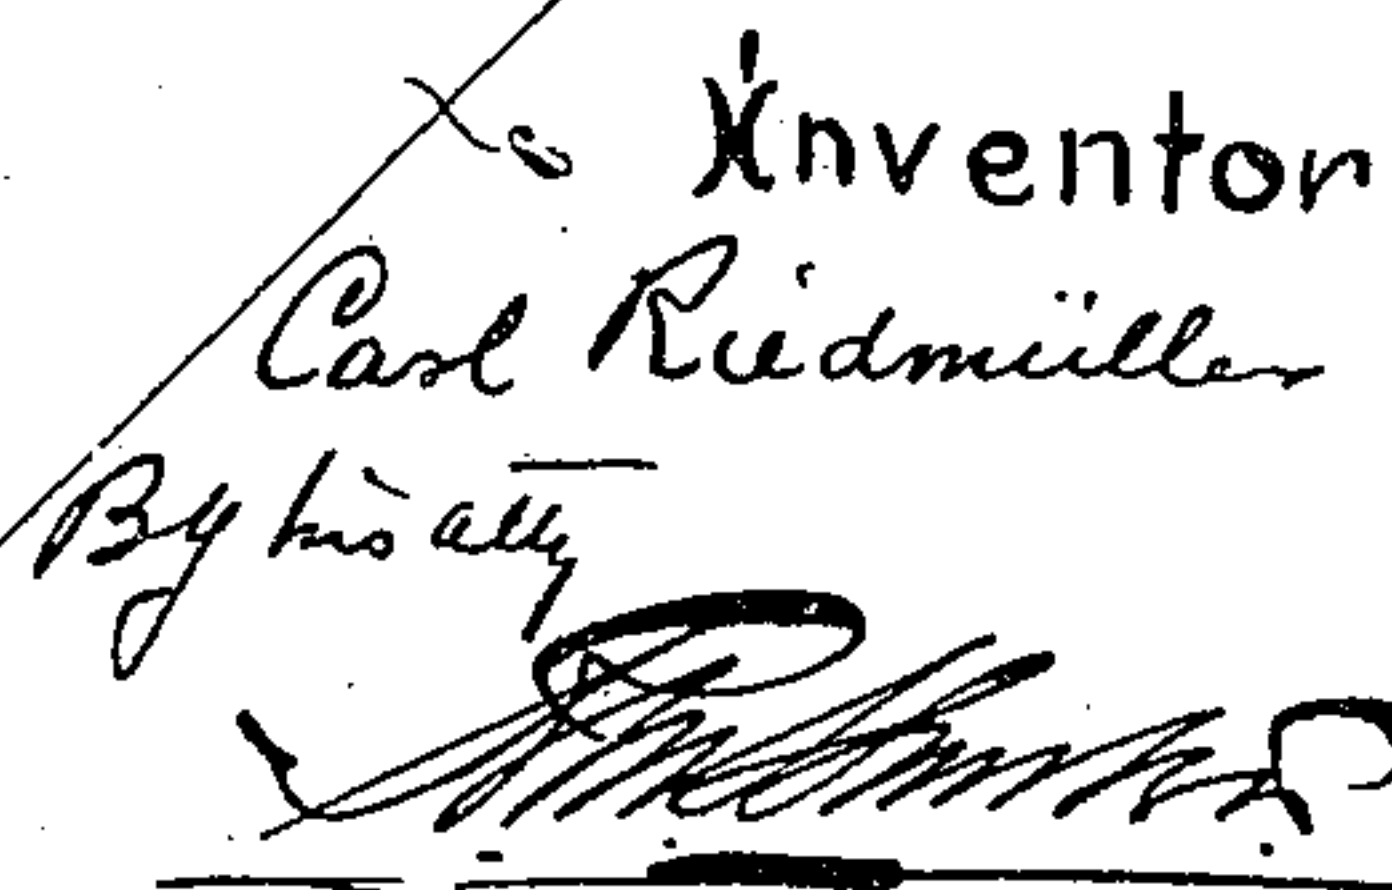 Inventor
Carl Riedmüller
By his atty